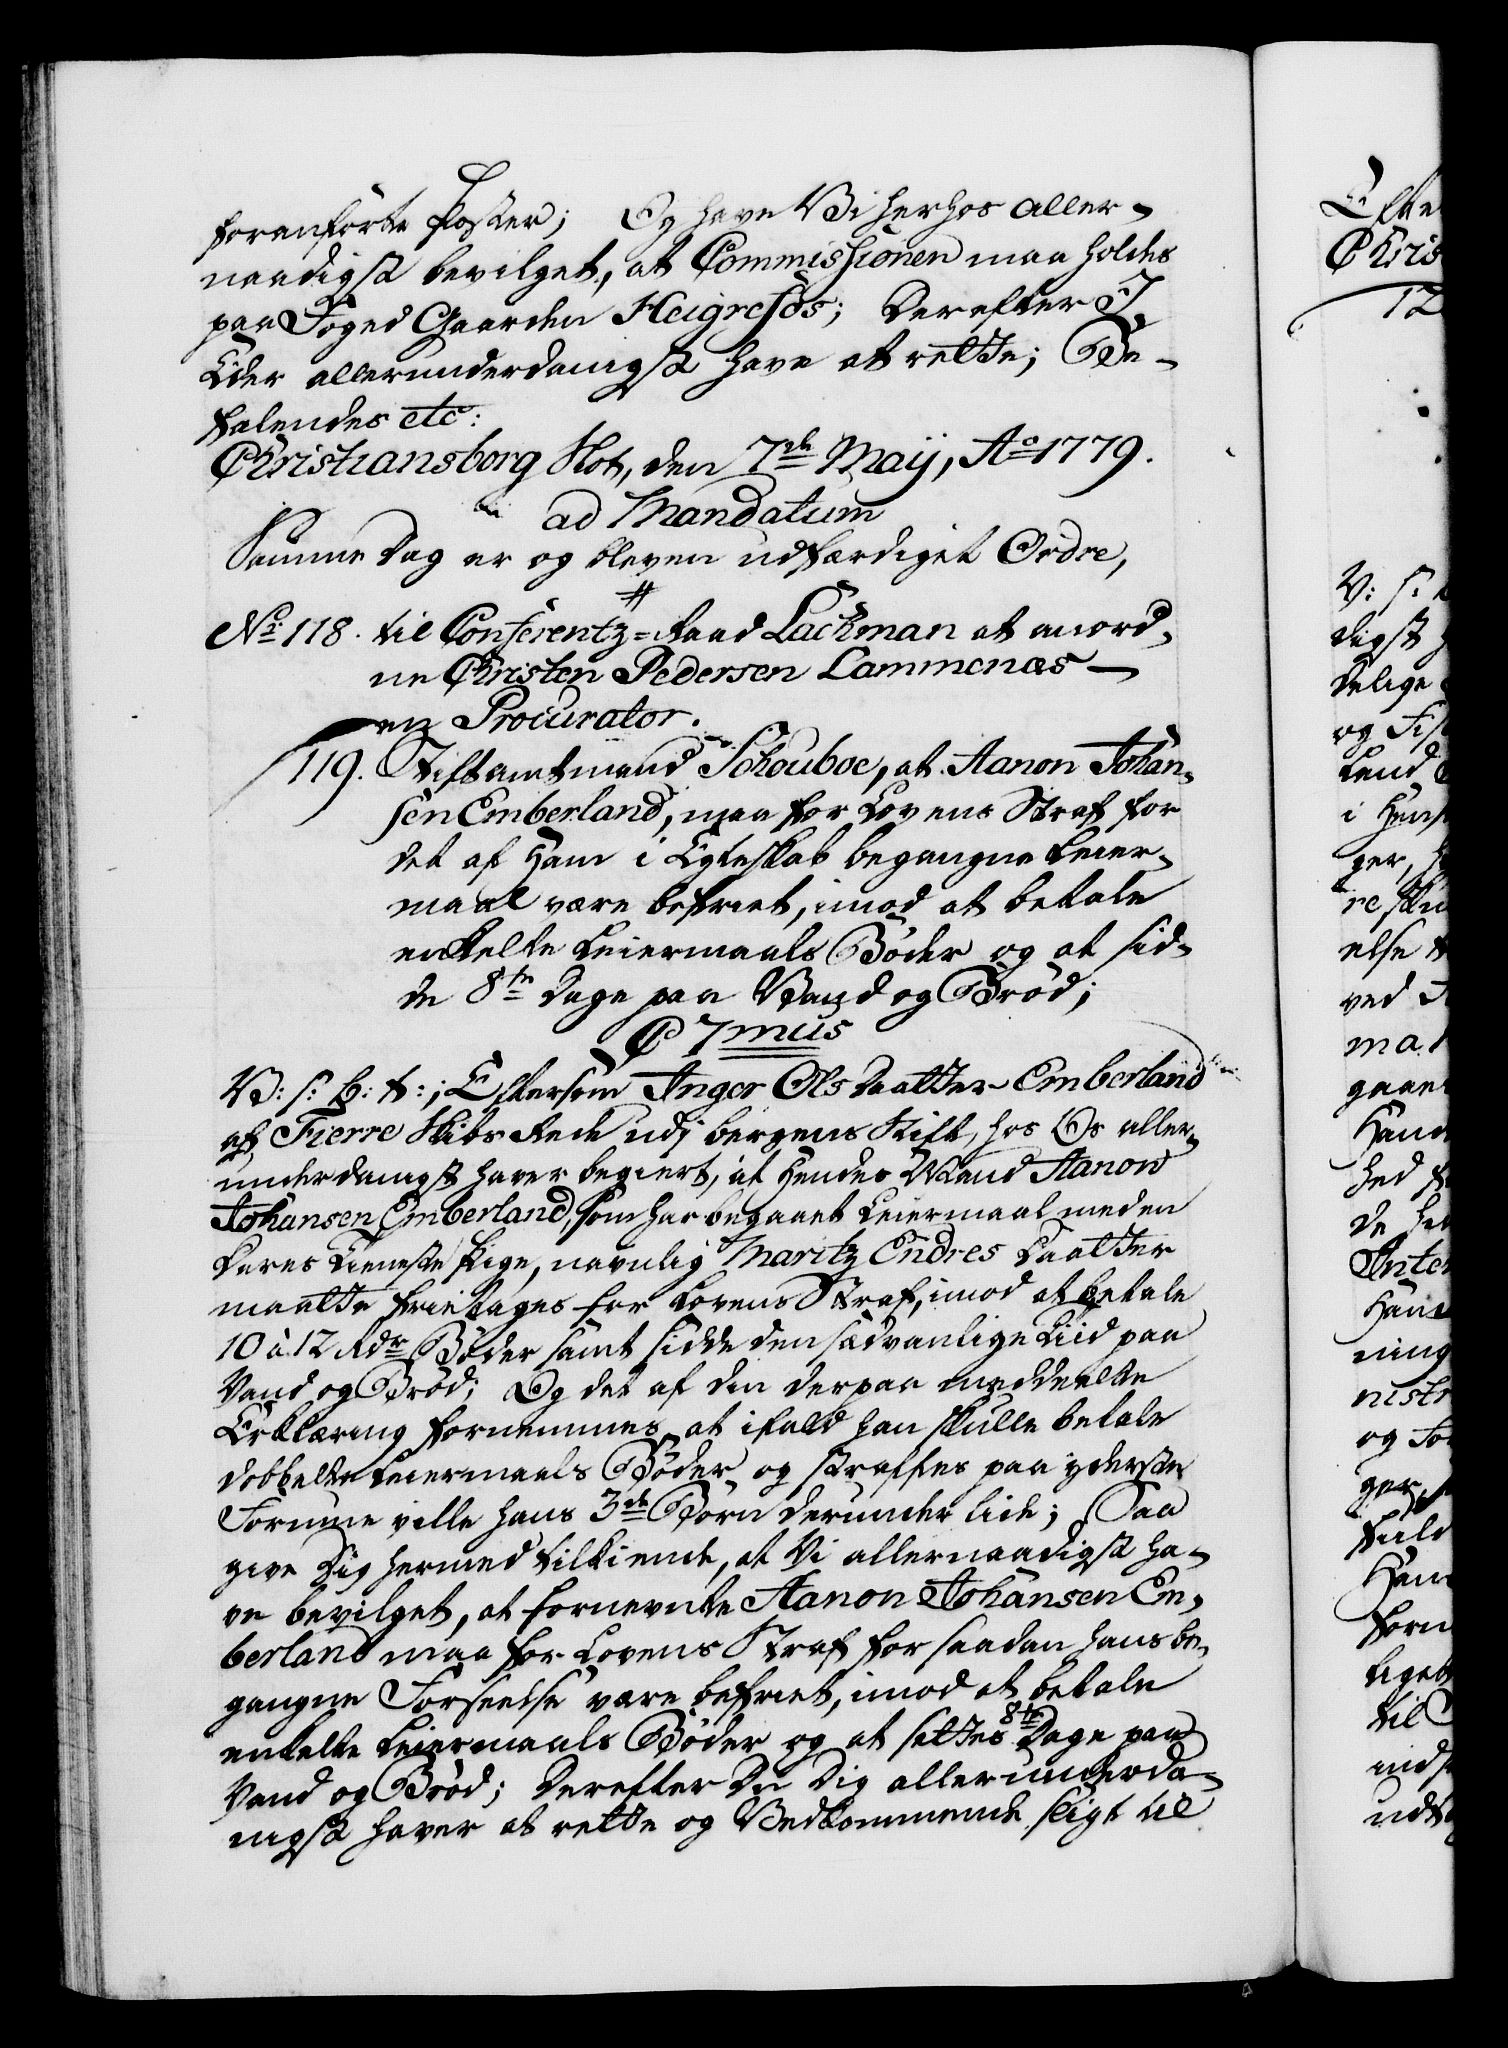 foranførte Poster; Og have Vi herhos aller-
naadigst bevilget, at Commissionen maa holdes
paa Foged Gaarden Heigrefos; Derefter I
Eder allerunderdanigst have at rette; Be-
falendes etc:
Christiansborg Slot, den 7de Maij, Ao 1779.
ad Mandatum
Samme Dag er og bleven udfærdiget Ordre,
No 118. til Conferentz=Raad Lachman at anord-
ne Christen Pedersen Lammenæs
en Procurator.
119. Stiftamtmand Schouboe, at Aanon Johan-
sen Emberland, maa for Lovens Straf for
det af Ham i Egteskab begangne Leier-
maal være befriet, imod at betale
enkelte Leiermaals Bøder og at sid-
de 8te Dage paa Vand og Brød;
C 7mus
V: s: G: t:; Eftersom Inger Ols Daatter Emberland
af Fierre Skibs Rede udj bergens Stift, hos Os aller-
underdanigst haver begiert, at Hendes Mand Aanon
Johansen Emberland, som har begaaet Leiermaal med en
deres Tieneste Pige, navnlig Maritz Endres Daatter
maatte fritages for Lovens Straf, imod at betale
10 à 12 Rdr Bøder samt sidde den sædvanlige Tiid paa
Vand og Brød; Og det af den derpaa meddeelte
Erklæring fornemmes at ifald han skulle betale
dobbelte Leiermaals Bøder og straffes paa yderste
Formue ville hans 3de Børn derunder lide; Saa
give Dig hermed tilkiende, at Vi allernaadigst ha-
ve bevilget, at fornevnte Aanon Johansen Em-
berland maa for Lovens Straf for saadan hans be-
gangne Forseelse være befriet, imod at betale
enkelte Leiermaals Bøder og at settes 8te Dage paa
Vand og Brød; Derefter Du Dig allerunderda-
nigst haver at rette og Vedkommende sligt til